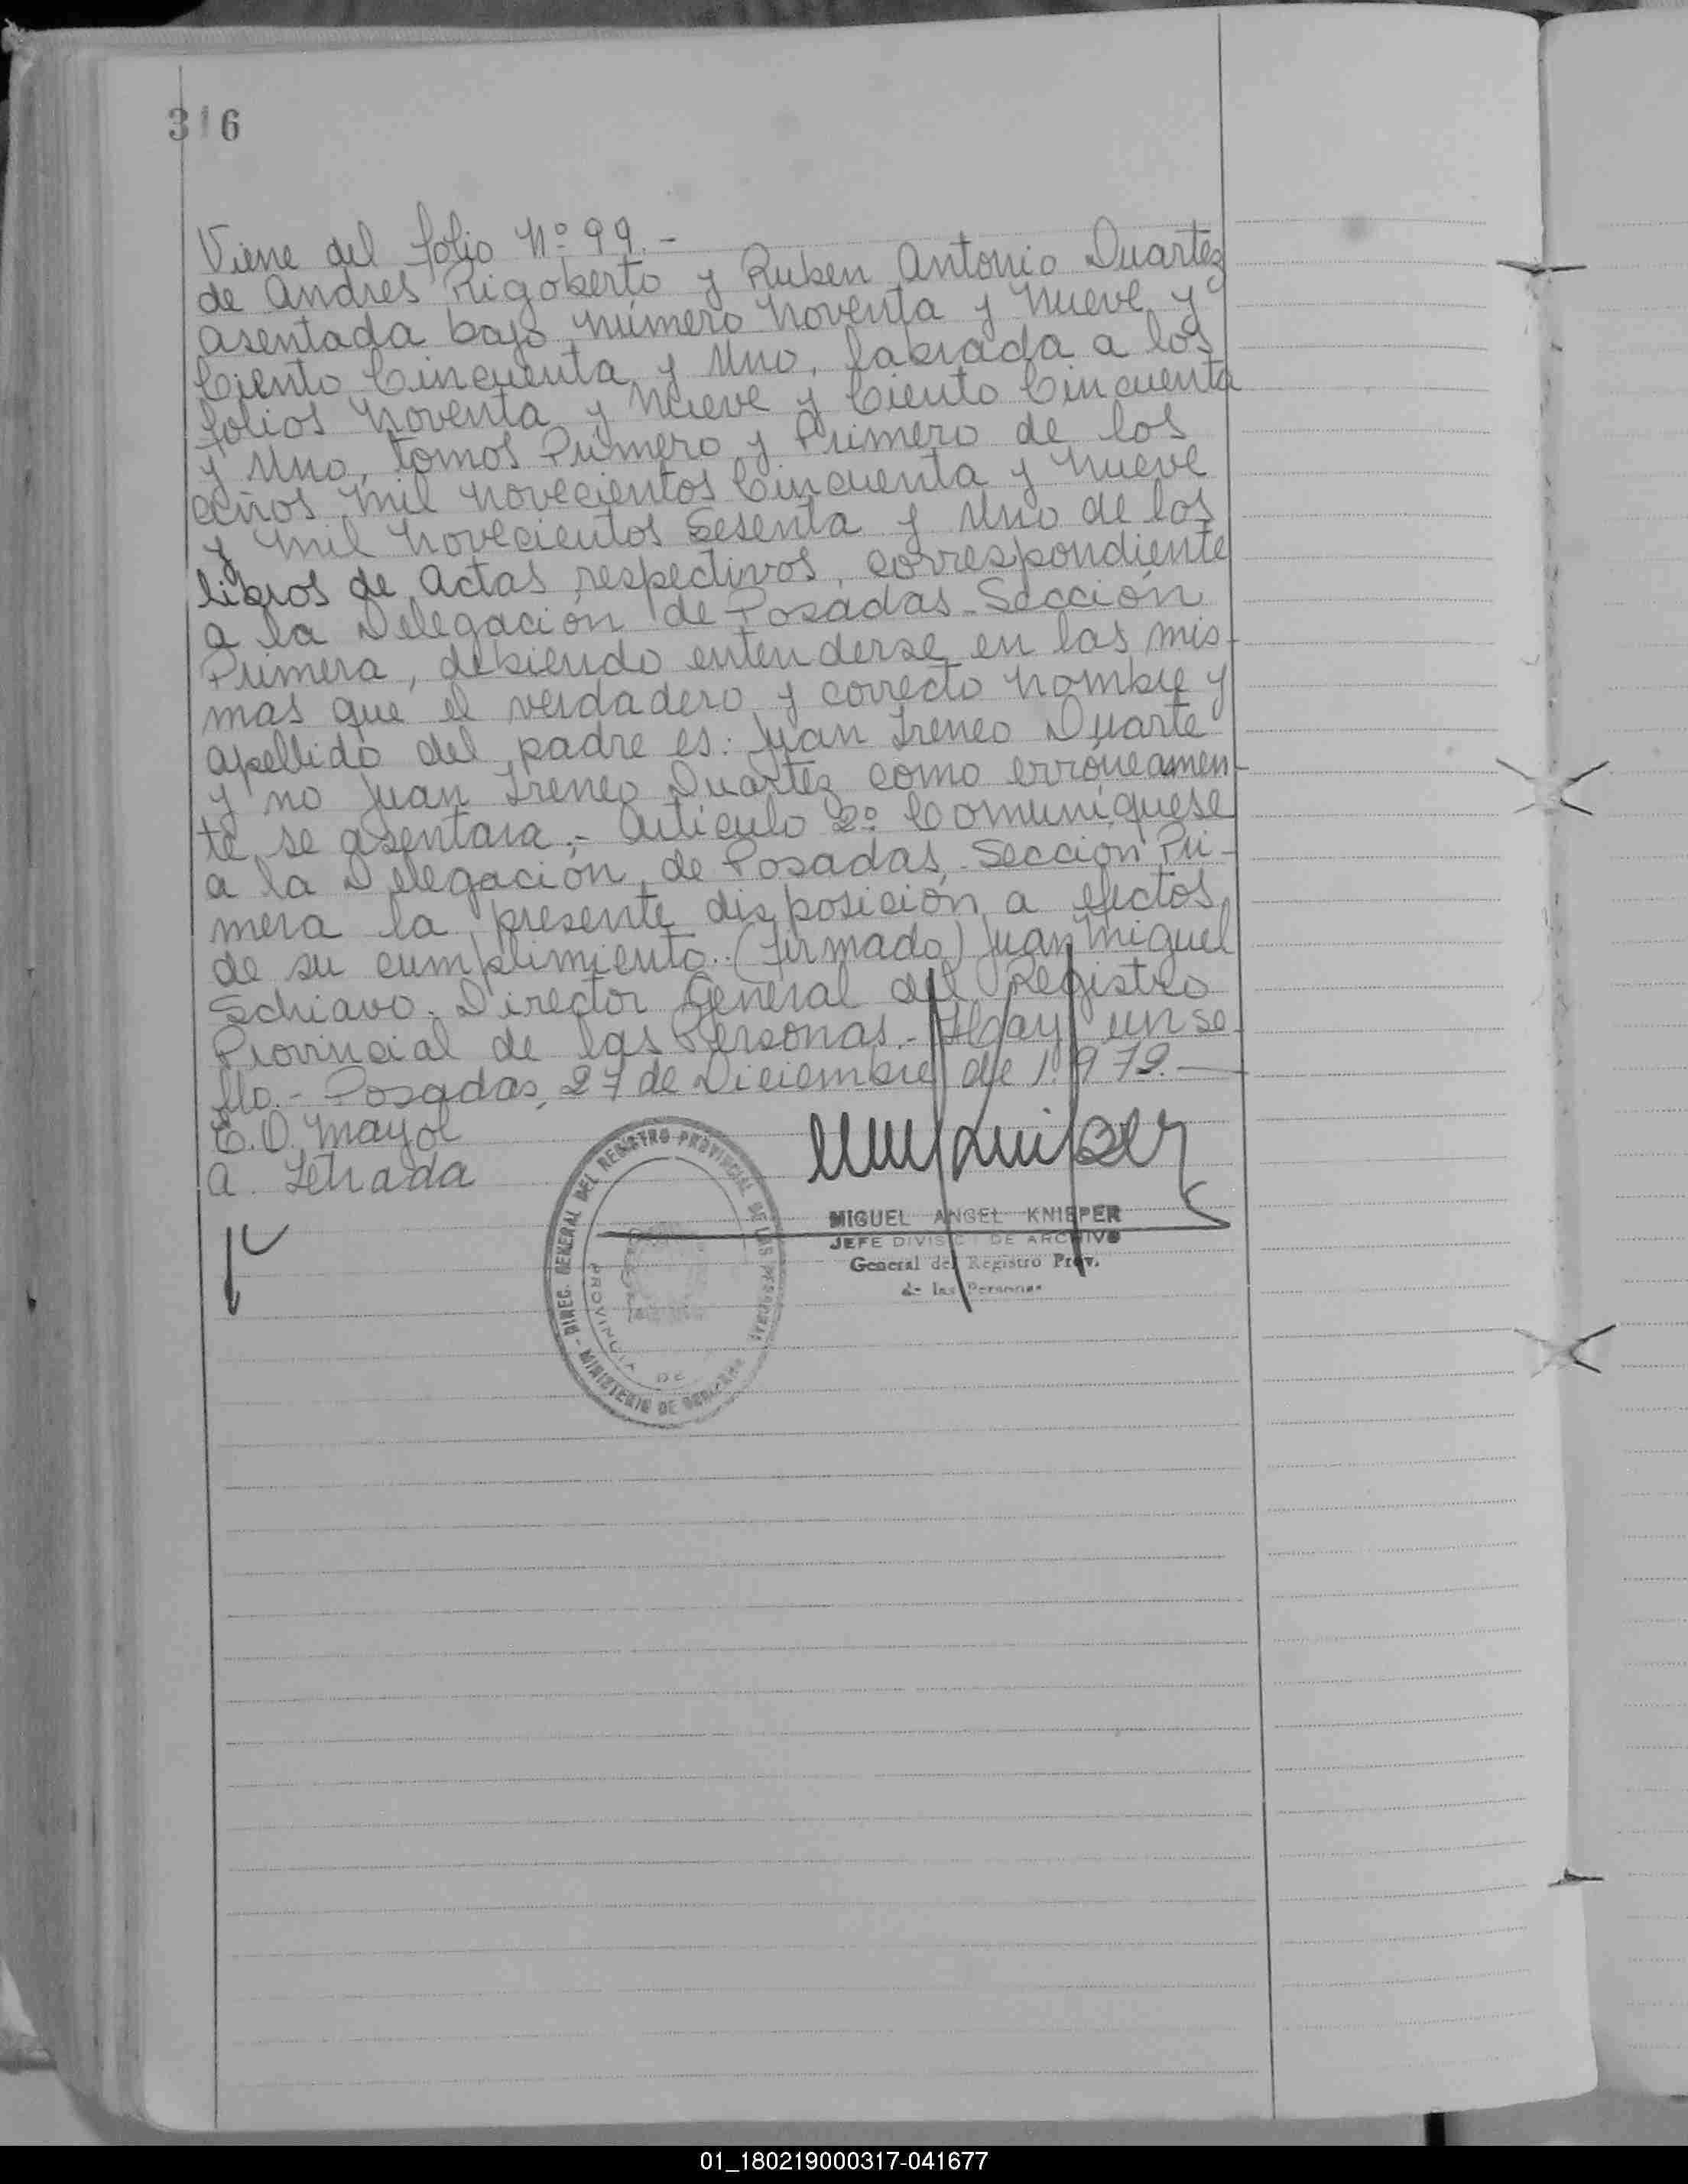 316
Viene del folio Nº 99.-
de Andres Rigoberto y Ruben Antonio Duartez
asentada bajo número noventa y nueve y
Ciento Cincuenta y Uno, labrada a los
folios noventa y nueve y Ciento Cincuenta
y Uno, tomos Primero y Primero de los
años mil novecientos Cincuenta y nueve
y mil novecientos Sesenta y Uno de los
libros de Actas respectivos, correspondiente
a la Delegación de Posadas-Sección
Primera, debiendo entenderse en las mis-
mas que el verdadero y correcto nombre y
apellido del padre es: Juan Ireneo Duarte
y no Juan Ireneo Duartez como erróneamen-
te se asentara.- Artículo 2º Comuníquese
a la Delegación de Posadas, Sección Pri-
mera la presente disposición a efectos
de su cumplimiento.. (Firmado) Juan Miguel
Schiavo. Director General del Registro
Provincial de las Personas.- Hay un se-
llo.- Posadas, 27 de Diciembre de 1.979.-
E.O. Mayol
A. Letrada
DIREC. GENERAL DEL REGISTRO PROVINCIAL DE LAS PERSONAS
- MINISTERIO DE
PROVINCIA DE
MIGUEL ANGEL KNIEPER
JEFE DIVISION DE ARCHIVO
General del Registro Prov.
de las Personas
01_180219000317-041677